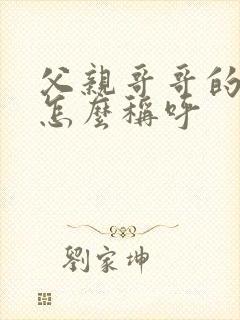 父親哥哥的
怎麼稱呼
劉家坤